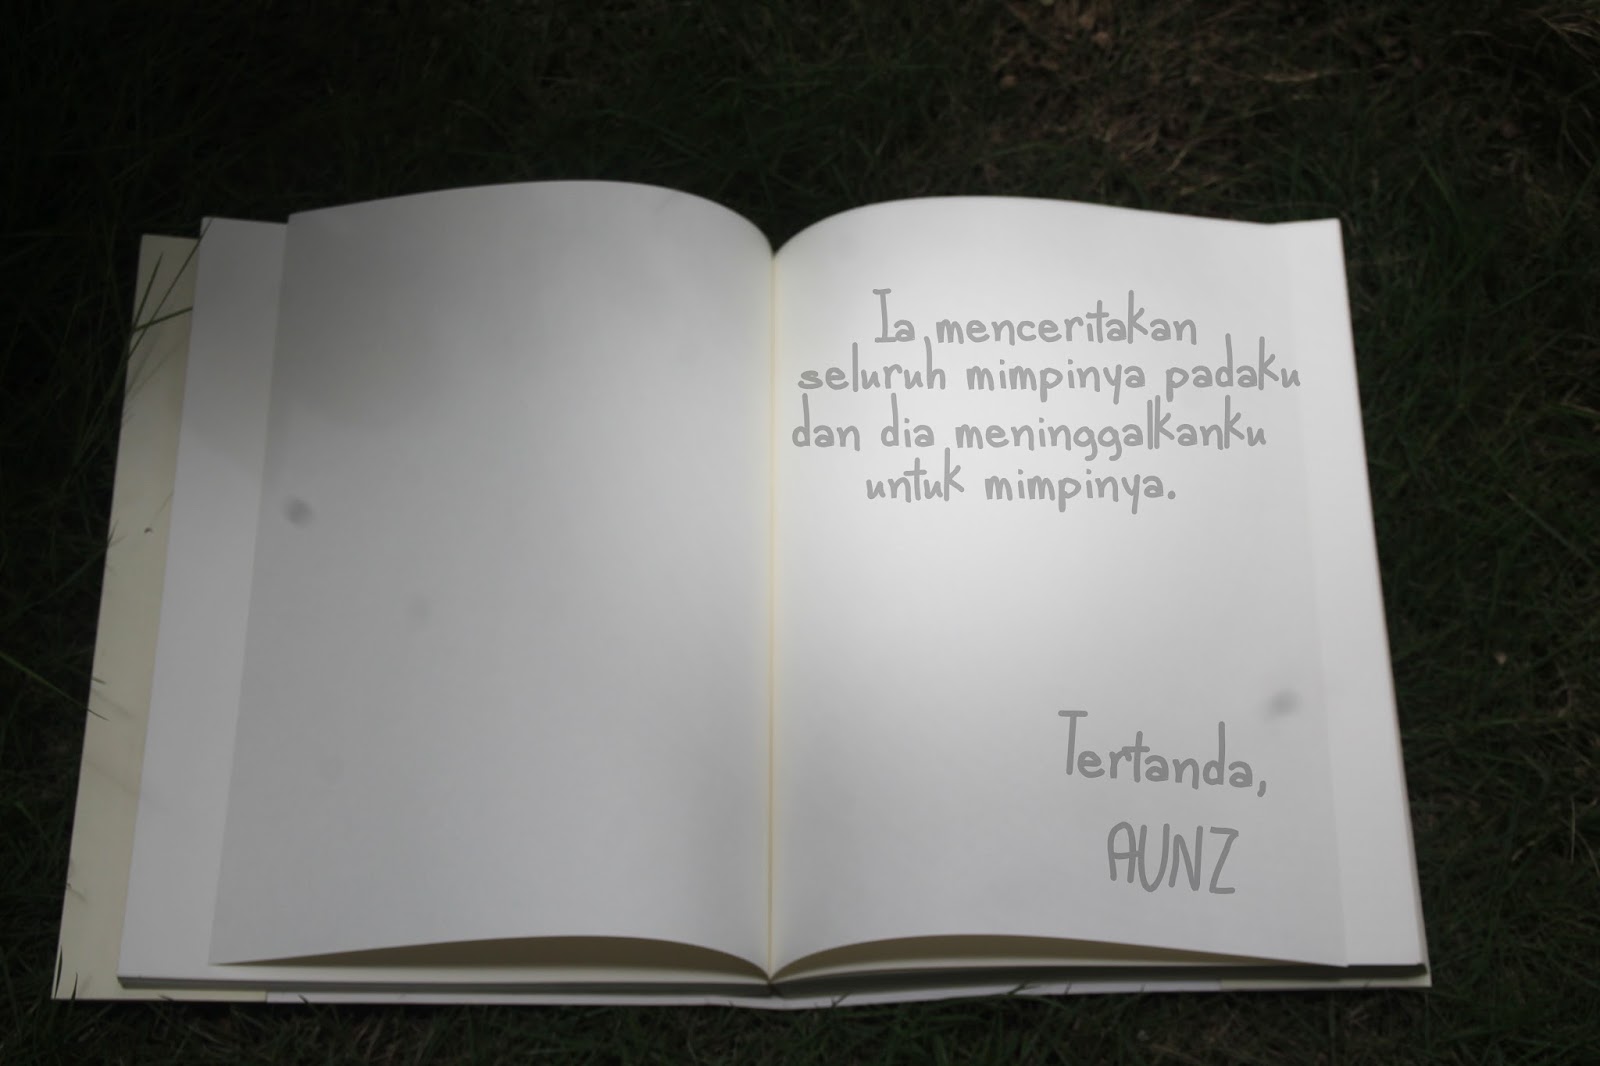 Ia menceritakan
seluruh mimpinya padaku
dan dia meninggalkanku
untuk mimpinya.
Tertanda,
AUNZ